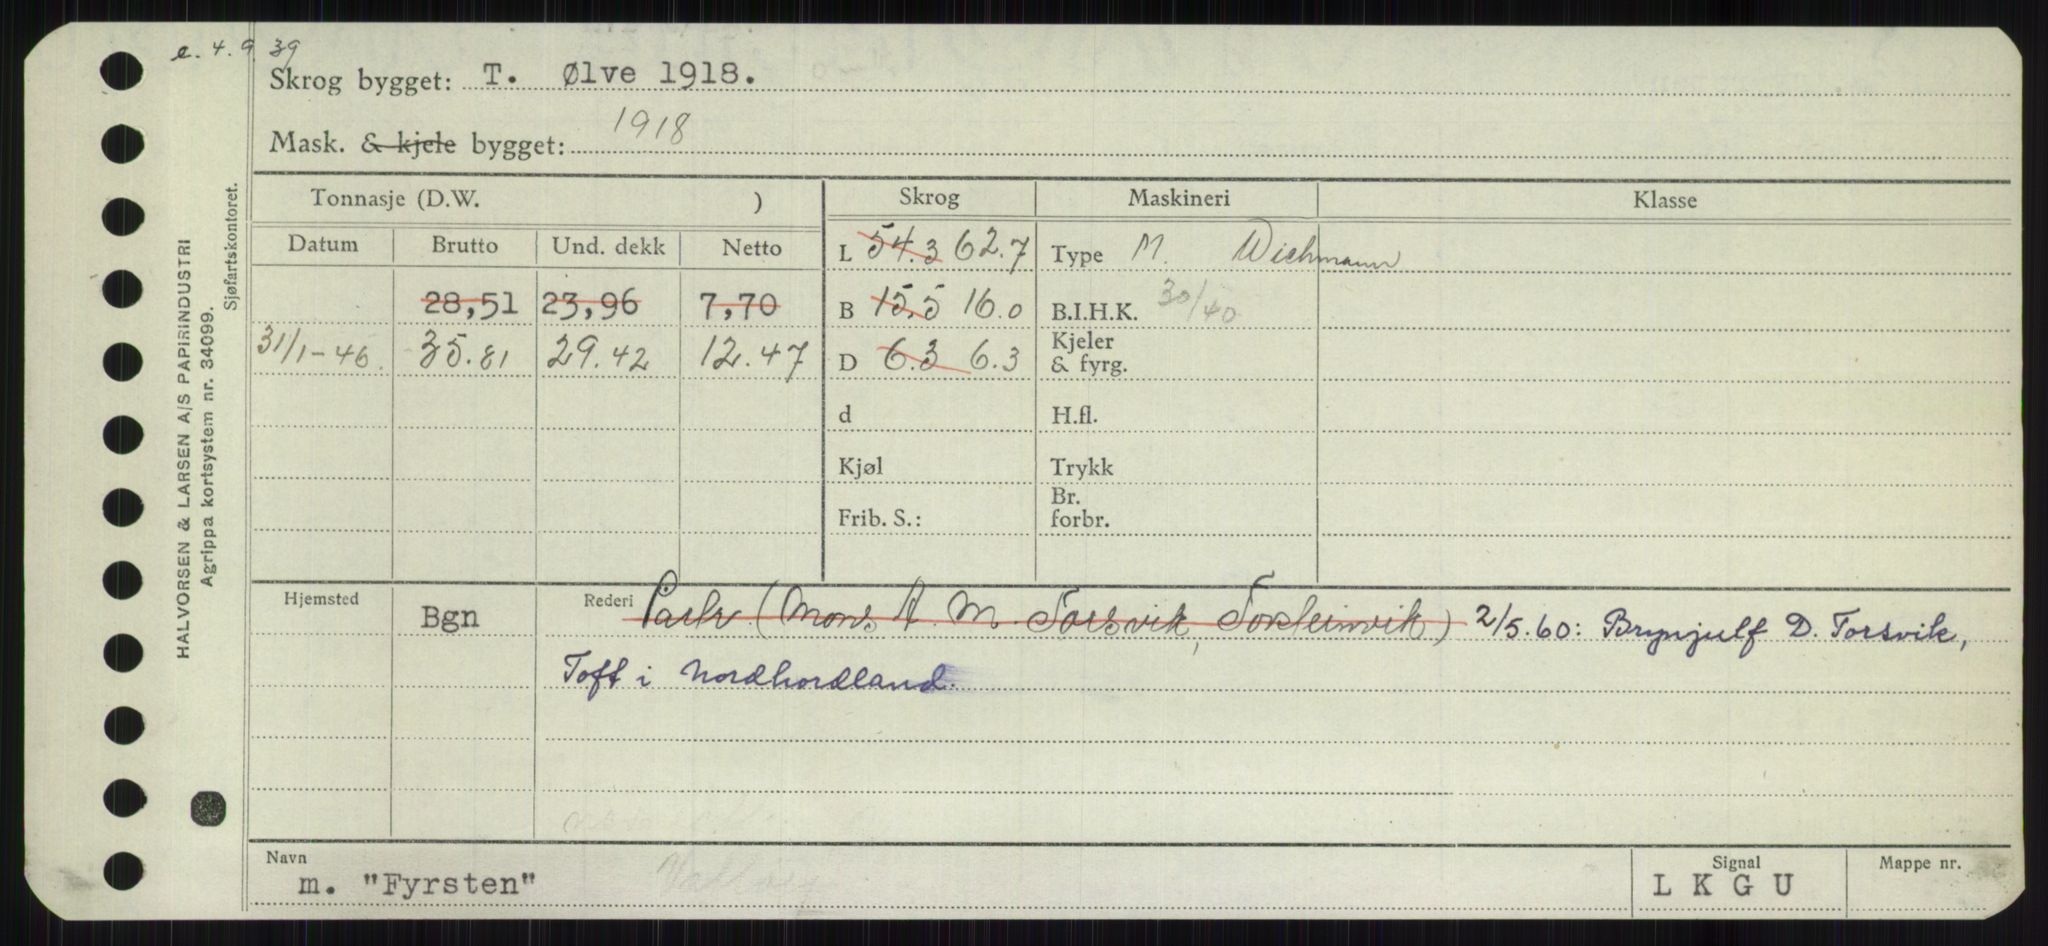 e. 4. 9. 39
Skrog bygget: T. Ølve 1918.
Mask. & kjele bygget: 1918
Tonnasje (D.W. ) Skrog Maskineri Klasse
Datum Brutto Und. dekk Netto L 54.3 62.7 Type M. Wichmann
28,51 23,96 7,70 B 15,5 16.0 B.I.H.K. 30/40
31/1-46. 35.81 29.42 12.47 D 6.3 6.3 Kjeler & fyrg.
d H.fl.
Kjøl Trykk
Frib. S.: Br. forbr.
Hjemsted Bgn Rederi Partr. (Mons A. M. Torsvik, ) 2/5.60: Brynjulf D. Torsvik,
Toft i Nordhordland.
Navn Signal Mappe nr.
m. "Fyrsten" L K G U
HALVORSEN & LARSEN A/S PAPIRINDUSTRI
Agrippa kortsystem nr. 34099.
Sjøfartskontoret.